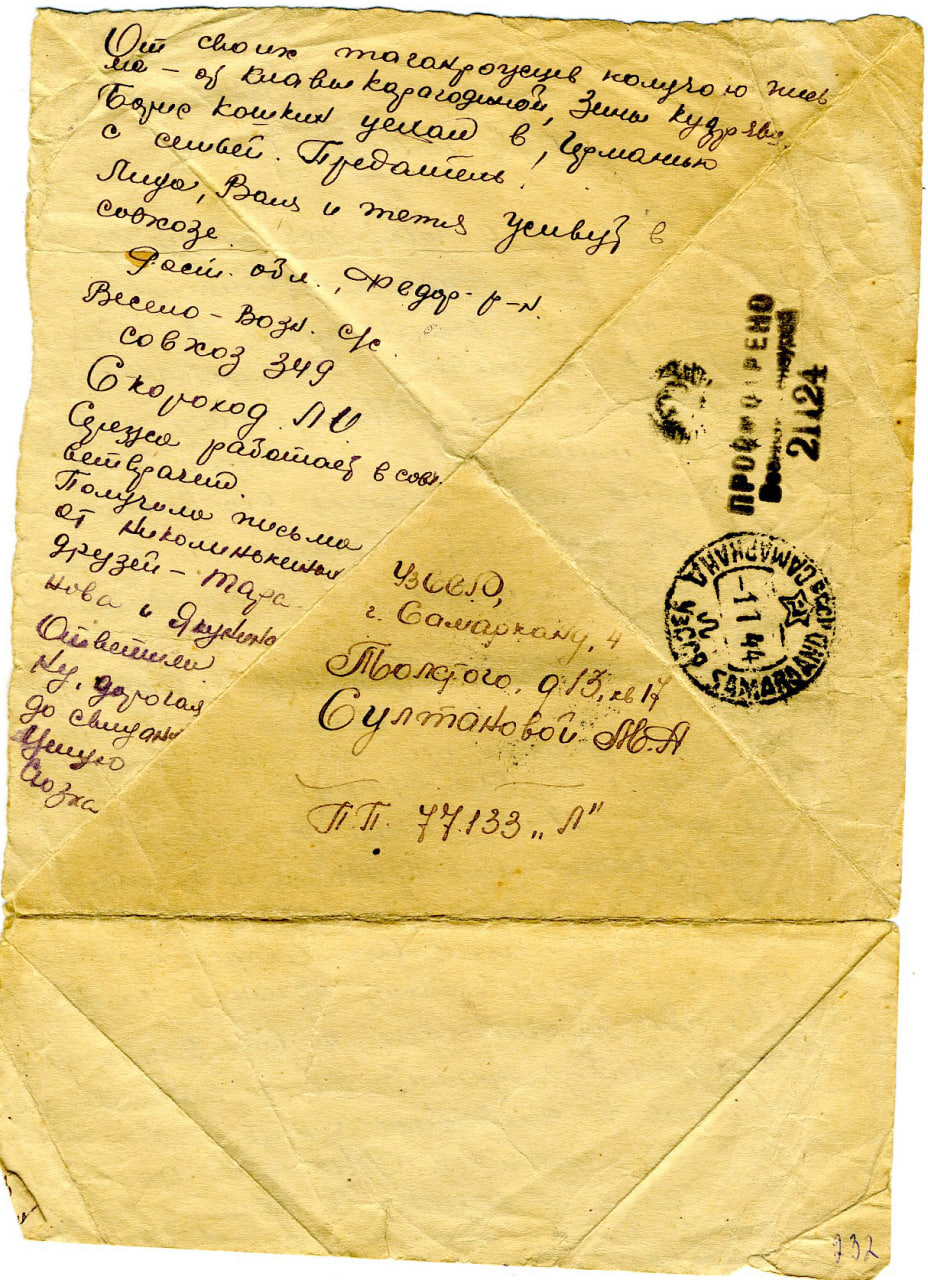 От своих таганрожцев получаю пись
ма – от Клавы Карагодиной, Зины Кудрявц.
Борис Кошкин уехал в Германию
с семьей. Предатель.
Лида, Валя и тетя живут в
совхозе.
Рост. обл., Федор. р-н.
Весело-Возн. с/с.
совхоз 349
Скороход Л И
Сережа работает в совх.
ветврачем.
Получила письма
от Николинькиных
друзей – Тара
нова и Якунина
Ответила
Ну, дорогая
до свидания
Целую
УзССР,
г. Самарканд, 4
Толстого, д 13, кв 17
Султановой М.А
П П. 77133 „Л"
ПРОСМОТРЕНО
Военной Цензурой
21124
САМАРКАНД УзССР
-1 1 44
SAMARKAND
232